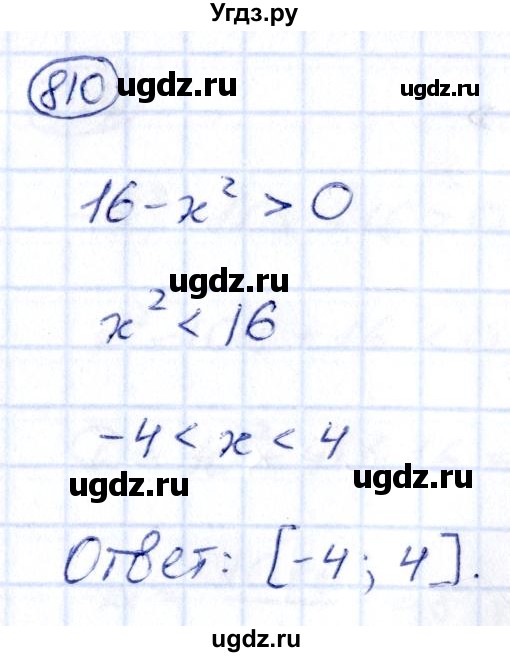 Угдз.ру
810
ugdz.ru ugdz.ru
16-x² > 0
ugdz.ru
x² < 16
-4 < x < 4
ugdz.ru ugdz.ru
Ответ: [-4; 4].
ugdz.ru